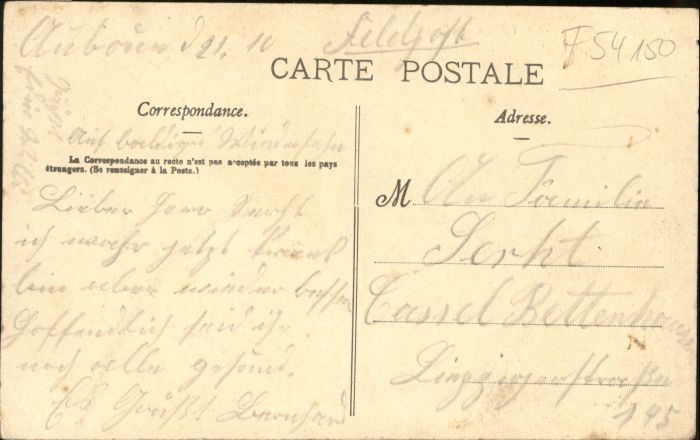 Auboué d 21. 10 Feldpost
F54150
CARTE POSTALE
Correspondance.
Adresse.
Auf baldiges Wiedersehn
La Correspondance au recto n'est pas acceptée par tous les pays
étrangers. (Se renseigner à la Poste.)
Lieber Herr Serht
ich wahr jetzt krank
bin aber wieder besser
Hoffendlich seid ihr
noch alle gesund.
Es Grüßt Bernhard
M An Familie
Serht.
Cassel Bettenhausen
Leipzigerstraße
195